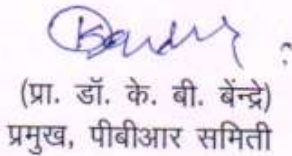 (प्रा. डॉ. के. बी. बेंन्द्रे)
प्रमुख, पीबीआर समिती